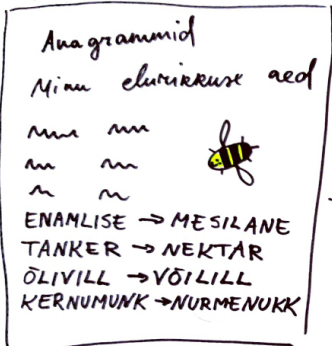 Anagrammid
Minu elurikkuse aed
ENAMLISE → MESILANE
TANKER → NEKTAR
ÕLIVILL → VÕILILL
KERNUMUNK → NURMENUKK